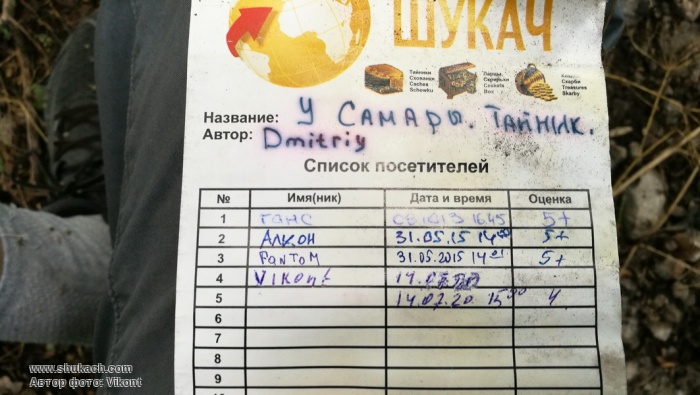 ШУКАЧ
Тайники Ларцы Клады
Схованки Скриньки Скарби
Caches Caskets Treasures
Schowku Box Skarby
Название: У САМАРЫ. ТАЙНИК.
Автор: Dmitriy
Список посетителей
№ Имя(ник) Дата и время Оценка
1 ГАНС 5+
2 АЛКОН 31.05.15 14 00 5+
3 PANTOM 31.05.2015 14 01 5+
4 VIKONT
5 14.02.20 15 00 4
6
7
8
9
www.shukach.com
Автор фото: Vikont